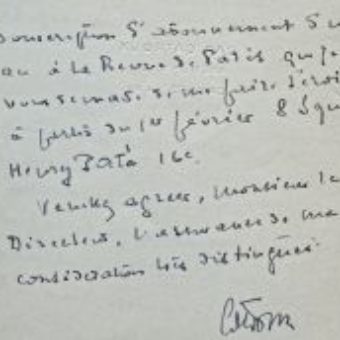 souscription d'abonnement d'un
an à la Revue de Paris que je
vous demande de me faire servir
à partir du 1er février 8 Squ
Henry Paté 16e.
Veuillez agréer, Monsieur le
Directeur, l'assurance de ma
considération très distinguée.